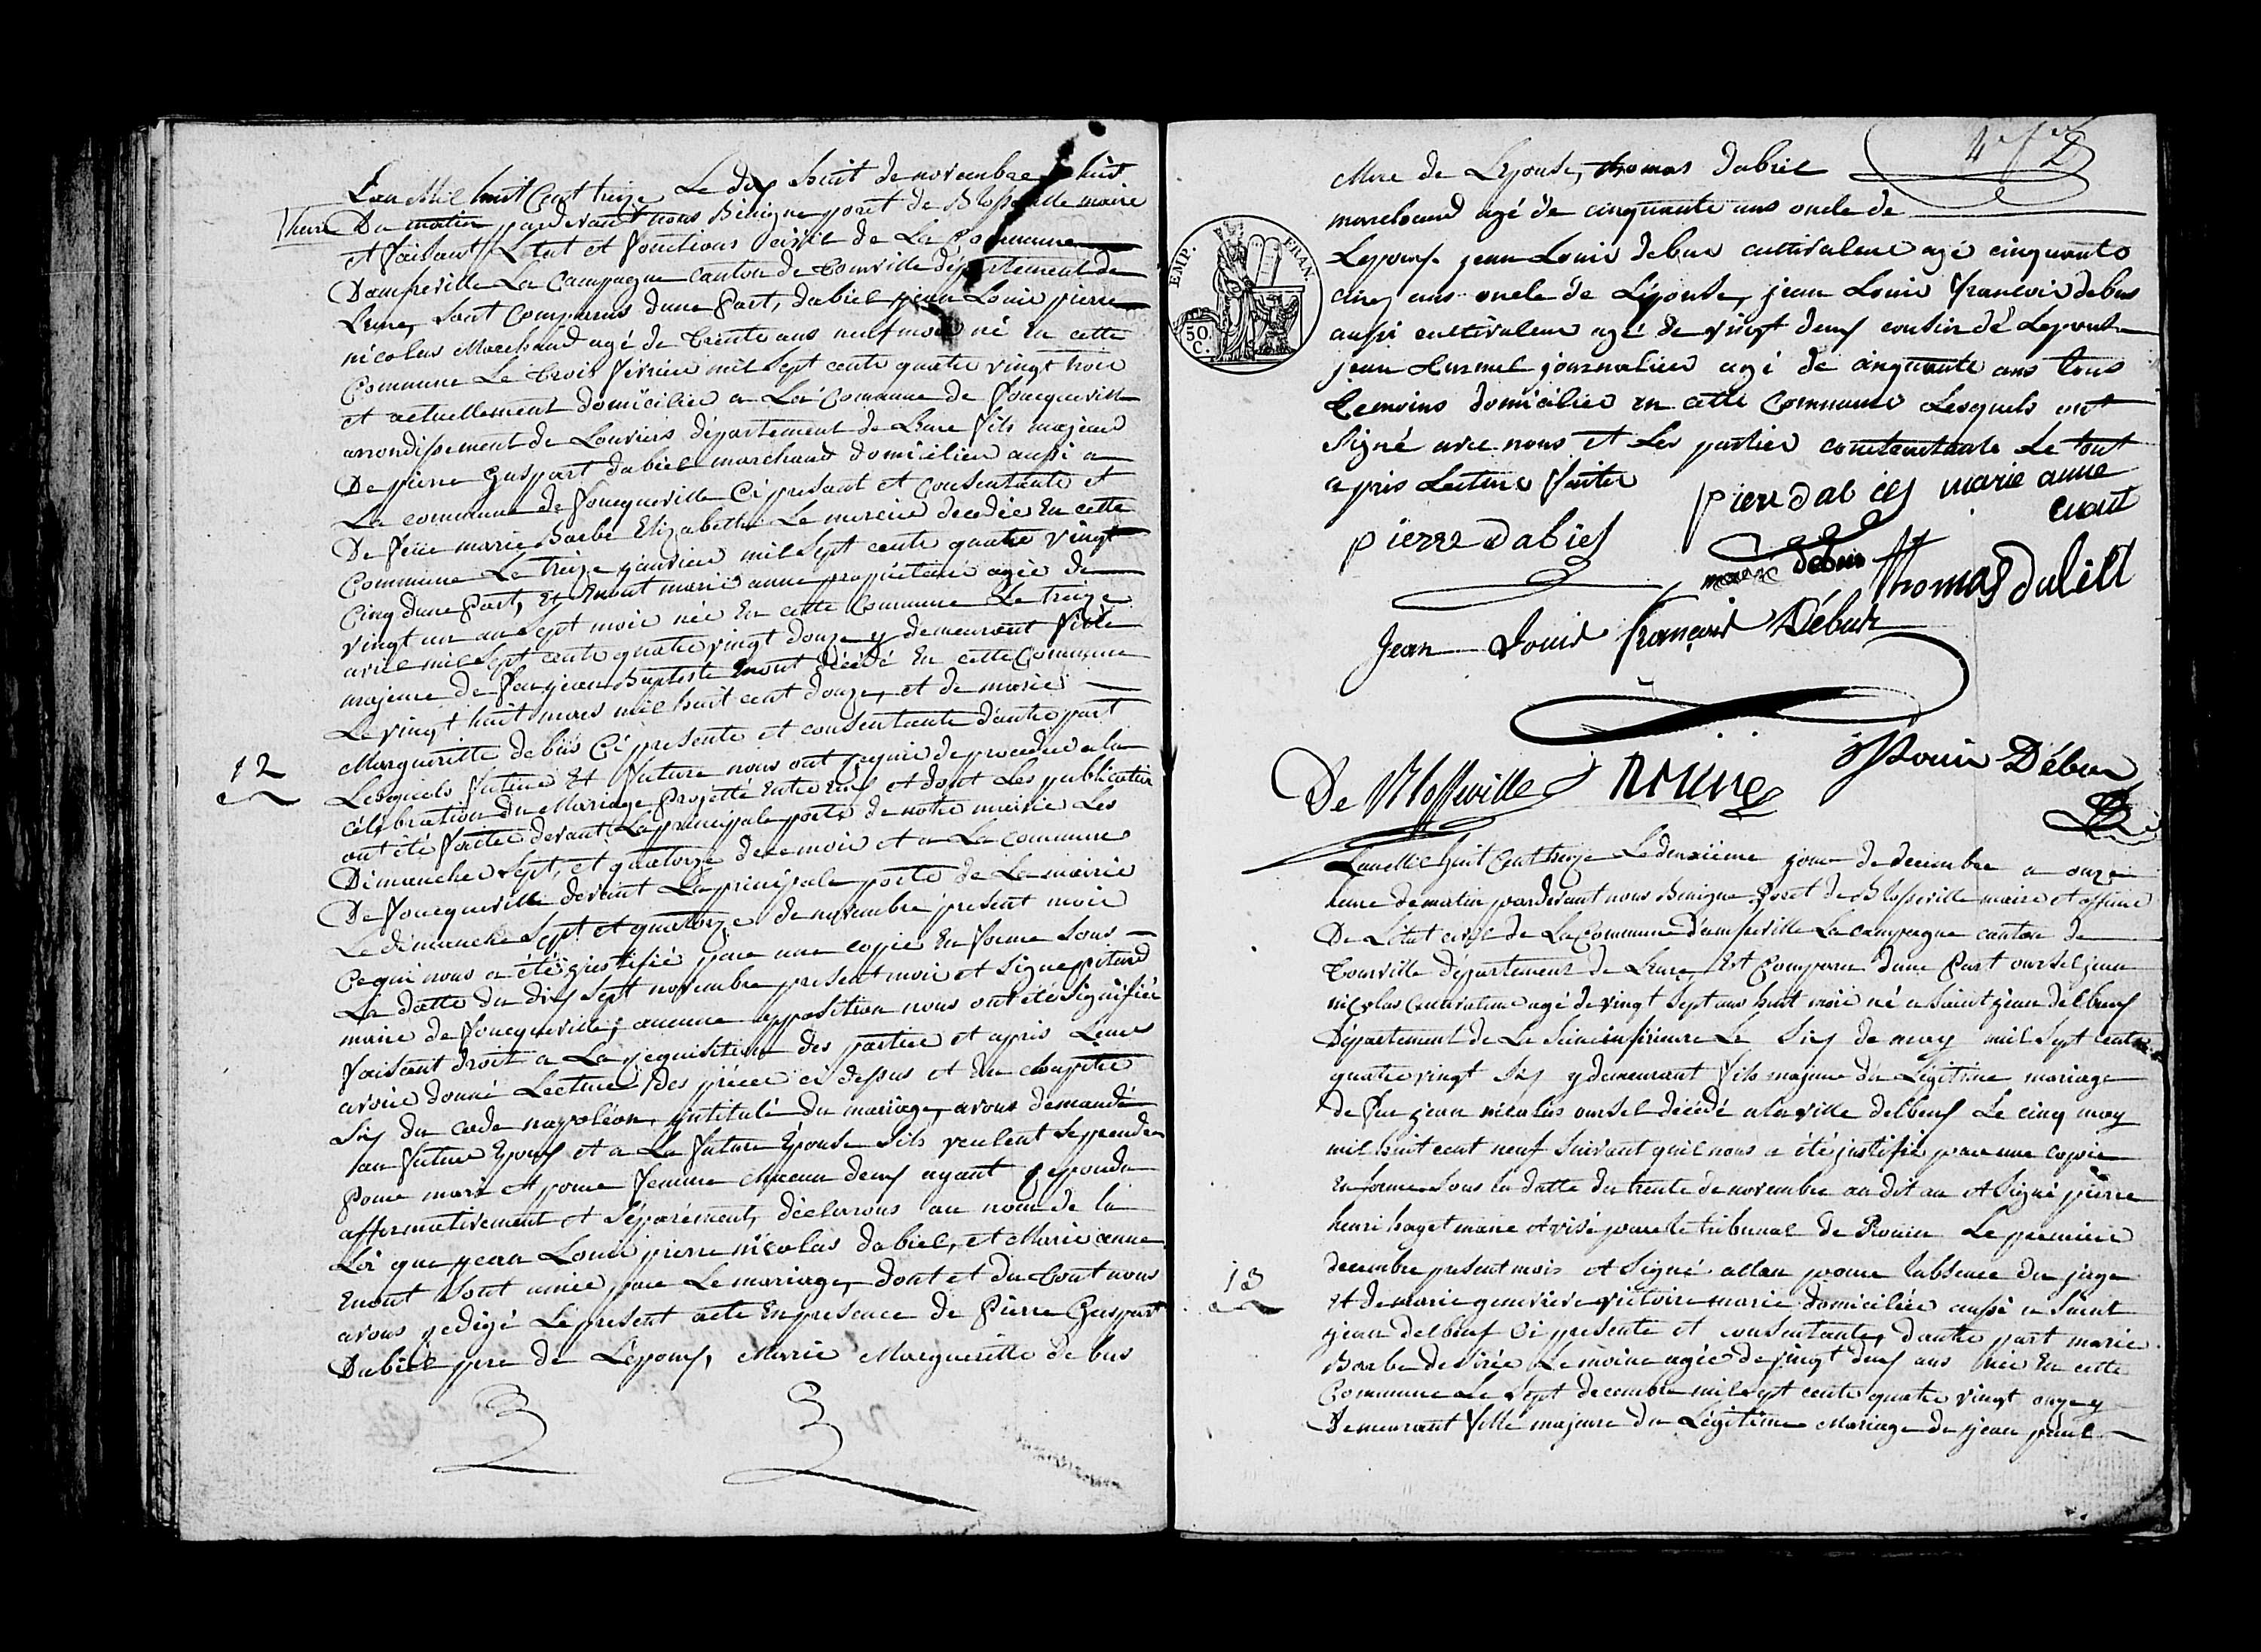 Lan Mil huit Cent treize Le dix huit de novembre a huit
heure Du matin pardevant nous Bénigne poret de Blosseville maire
et faisant Letat et fonctions civil de La Commune
Damfreville La Campagne canton de tourville département de
Leure, Sont Comparus dune Part, dabiel jean Louis pierre
nicolas Marchand agé de trente ans neuf mois né En cette
Commune Le trois février mil Sept cents quatre vingt trois
et actuellement domicilier a La Commune de fouqueville
arrondissement de Louviers département de Leure fils majeur
De pierre Guspart dabiel marchand domicilier aussi a
La commune de fouqueville Ci present et Consentante et
De feüe marie Barbe Elizabeth Le mercier decedée En cette
Commune Le treize janvier mil Sept cents quatre vingt
Cinq dune Part, Et Enout marie anne propriétaire agée de
vingt un ans Sept mois née En cette Commune Le treize
avril mil Sept cents quatre vingt douze y demeurant fille
majeure de feu jean Baptiste Enout décédé En cette Commune
Le vingt huit mars mil huit cent douze, et de marie
Margueritte debus Ci presente et consentante dautre part
12
Lesquels future Et future nous ont requis de proceder a la
célébration du Mariage Projetté Entre Eux et dont Les publication
ont été faitte devant La principale porte de notre mairie Les
Dimanche Sept, et quatorze de ce mois et a La commune
De fouqueville devant La principale porte de La mairie
Le dimanche Sept et quatorze de novembre present mois
Ce qui nous a été justifié par une copie En forme Sous
La datte du dix Sept novembre present mois et Signé
maire de fouqueville, aucune opposition nous ont été Signifiée
faisant droit a La requisition des partie et apris Leur
avoir donné Lecture des pièces ci dessus et du chapitre
Six du code napoléon, intitulé Du mariage, avons demandé
au future Epoux et a La future Epouse Sils veulent Se prendre
Pour mari et pour femme chacun deux ayant repondu
affirmativement et Séparément, déclarons au nom de la
Loi que jean Louis pierre nicolas dabiel, et Marie anne
Enout Sont unis par Le mariage, dont et du tout nous
avons redigé Le present acte En presence de Pierre Guspart
Dabiel pere de Lépoux, Marie Margueritte De bus
4e
Mere de Lepouse, thomas dabiel
marchand agé de cinquante ans oncle de
Lepoux jean Louis debus cultivateur agé cinquante
cinq ans oncle de Lépouse, jean Louis francois debus
aussi cultivateur agé de vingt deux cousin de Lepouse
jean journalier agé de cinquante ans tous
temoins domicilier en cette Commune Lesquels ont
Signé avec nous et Les parties contractante Le tout
apris Lecture faitte
pierr dabiel marie anne
enout
pierre dabiel
marie debus thomas dabiel
Jean Louis françois Débus
Louis Débus
De Blosseville maire
TEMP. FRAN.
50 C.
Lan Mil huit Cent treize Le deuxième jour de decembre a onze
heure de matin pardevant nous Benigne Poret de Blosseville maire et officier
De Létat civil de La Commune Damfreville La campagne canton de
tourville département de Leure, Est Comparu dune Part oursel jean
nicolas Cultivateur agé de vingt Sept ans huit mois né a Saint jean delbeuf
Département de La Seine inférieure Le Six de may mil Sept cents
quatre vingt Six y demeurant fils majeur du Légitime mariage
de feu jean nicolas oursel décédé a la ville delbeuf Le cinq may
mil huit cent neuf Suivant quil nous a été justifié par une copie
En forme Sous la datte du trente de novembre au dit an et Signé pierre
henri hayet maire et visé par le tribunal de Rouen Le premier
decembre present mois et Signé allan pour labsence du juge
13
Et de marie genevieve victoire marie domiciliée aussi a Saint
jean delbeuf Ci presente et consentante, dautre part marie
Barbe desirée Le moine agée de vingt deux ans née En cette
Commune Le Sept decembre mil Sept cents quatre vingt onze y
Demeurant fille majeure du Légitime Mariage de jean paul